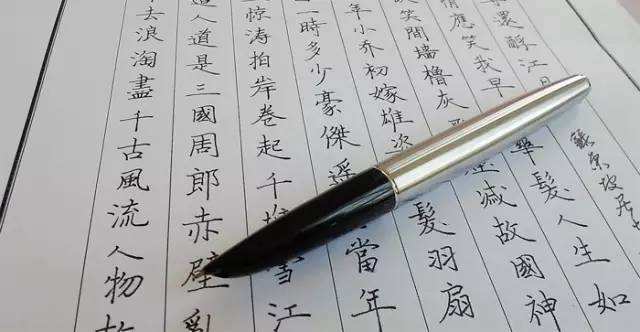 去浪淘盡千古風流人物故
人道是三國周郎赤壁亂
惊涛拍岸卷起千堆雪江
一時多少豪傑遥當年
年小乔初嫁雄
笑間墙櫓灰髮羽扇
情應笑我早減故國神
還酹江月華髮人生如
蘇東坡